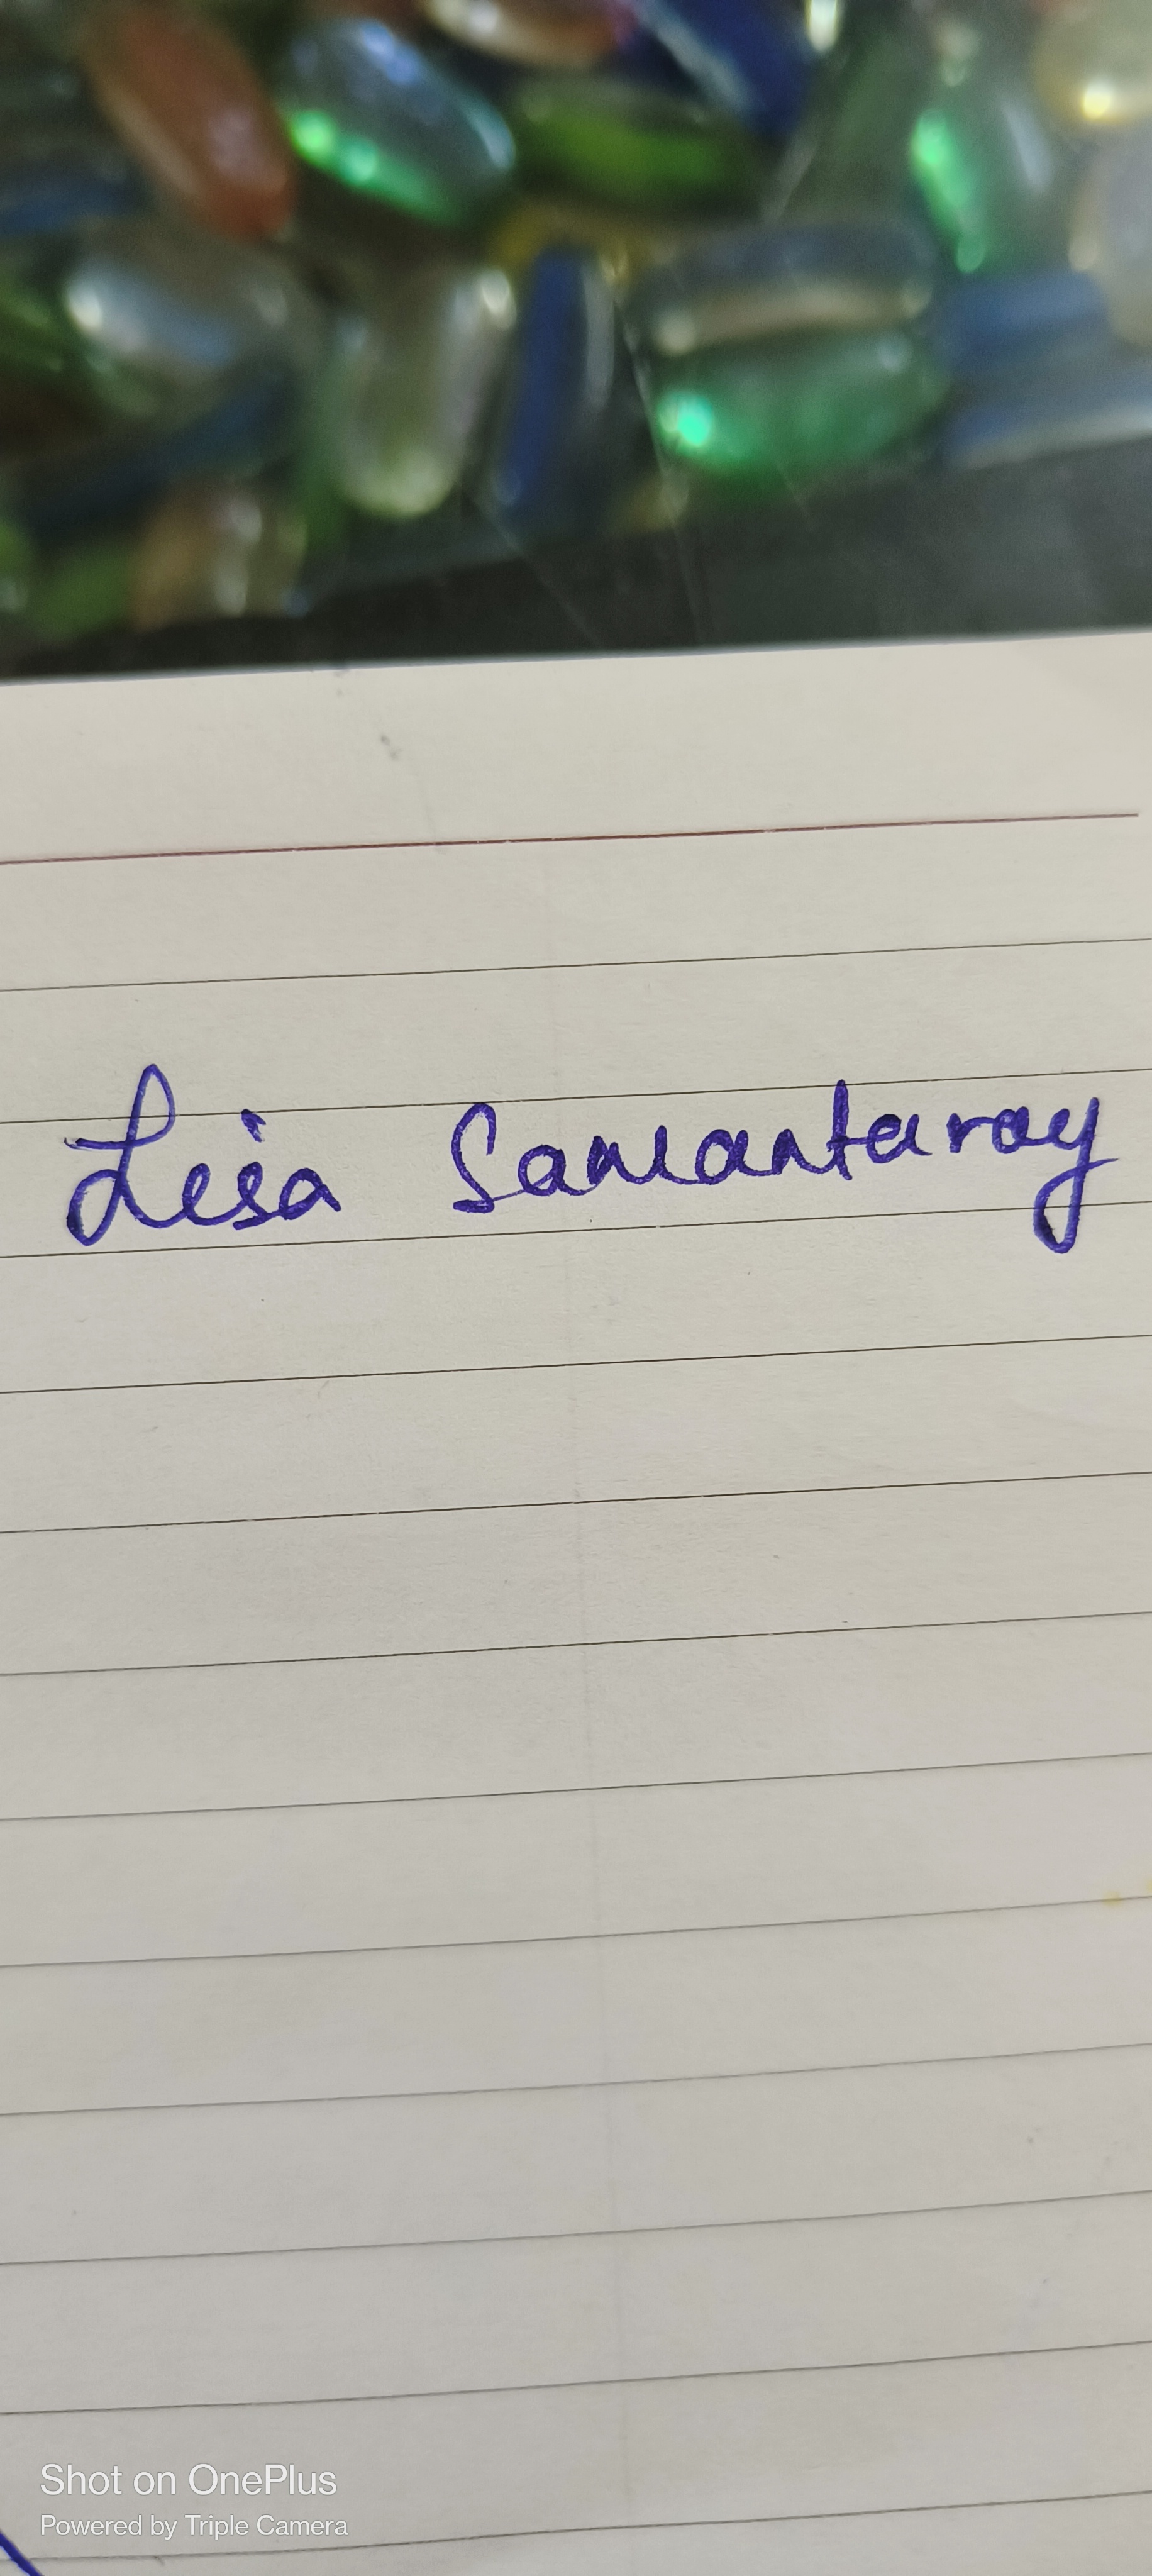 Lisa Samantaray
Shot on OnePlus
Powered by Triple Camera